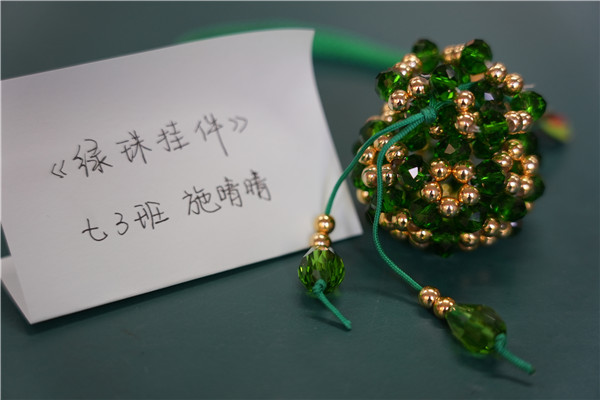 《绿珠挂件》
七3班 施晴晴